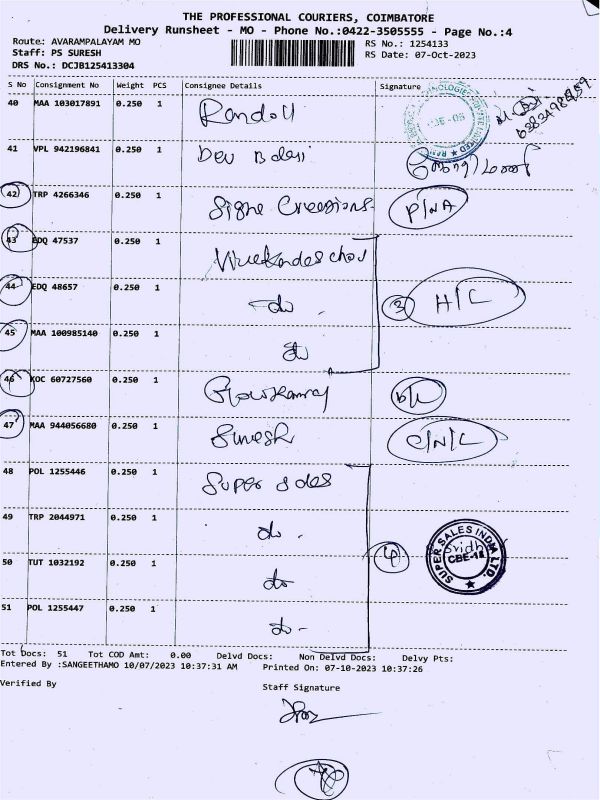 THE PROFESSIONAL COURIERS, COIMBATORE
Delivery Runsheet - MO - Phone No.:0422-3505555 - Page No.:4
Route: AVARAMPALAYAM MO RS No.: 1254133
Staff: PS SURESH RS Date: 07-Oct-2023
DRS No.: DCJB125413304
S No Consignment No Weight PCS Consignee Details Signature
40 MAA 103017891 0.250 1
41 VPL 942196841 0.250 1 Dev Balaji
42 TRP 4266346 0.250 1 Signe Creasions P/NA
43 EDQ 47537 0.250 1
44 EDQ 48657 0.250 1 do 3 H/L
45 MAA 100985140 0.250 1 do
46 KOC 60727560 0.250 1
47 MAA 944056680 0.250 1 Suresh C/N/L
48 POL 1255446 0.250 1 Super Sales
49 TRP 2044971 0.250 1 do.
50 TUT 1032192 0.250 1 do 4 SUPER SALES INDIA LTD. Sridh CBE-18
51 POL 1255447 0.250 1 do-
Tot Docs: 51 Tot COD Amt: 0.00 Delvd Docs: Non Delvd Docs: Delvy Pts:
Entered By :SANGEETHAMO 10/07/2023 10:37:31 AM Printed On: 07-10-2023 10:37:26
Verified By Staff Signature